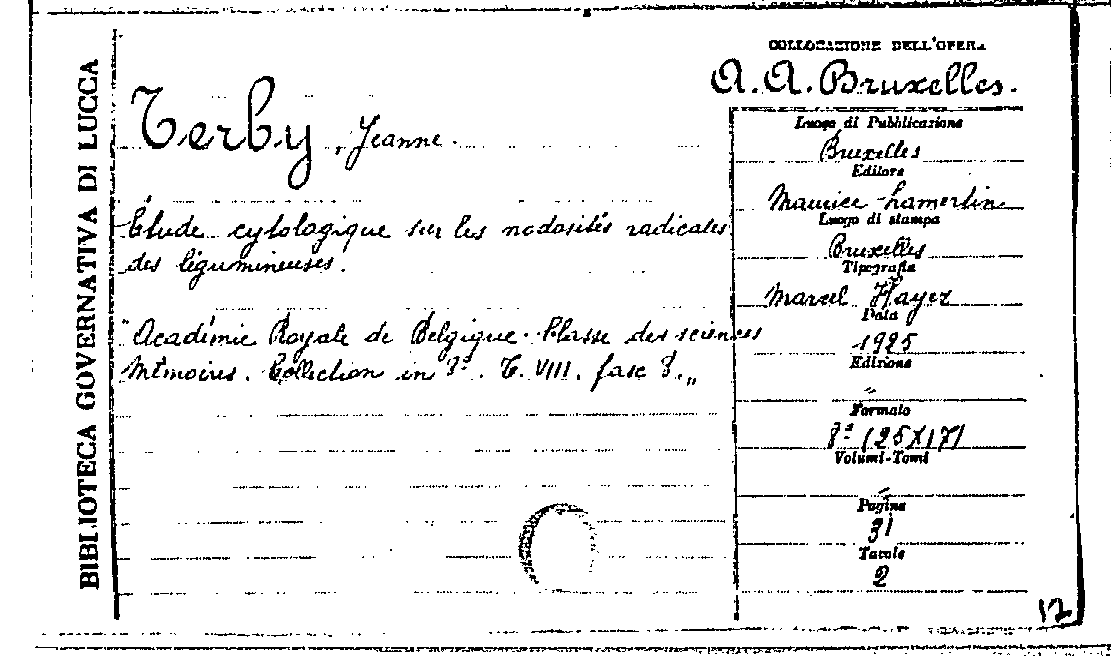 BIBLIOTECA GOVERNATIVA DI LUCCA
COLLOCAZIONE DELL'OPERA
A. A. Bruxelles.
Terby, Jeanne.
Étude cytologique sur les nodosités radicales
des légumineuses.
"Académie Royale de Belgique. Classe des sciences
Mémoires. Collection in 8º. T. VIII. fasc 8.„
Luogo di Pubblicazione
Bruxelles
Editore
Maurice Lamertin
Luogo di stampa
Bruxelles
Tipografia
Marcel Hayez
Data
1925
Edizione
"
Formato
8º (25X17)
Volumi-Tomi
"
Pagine
31
Tavole
2
12